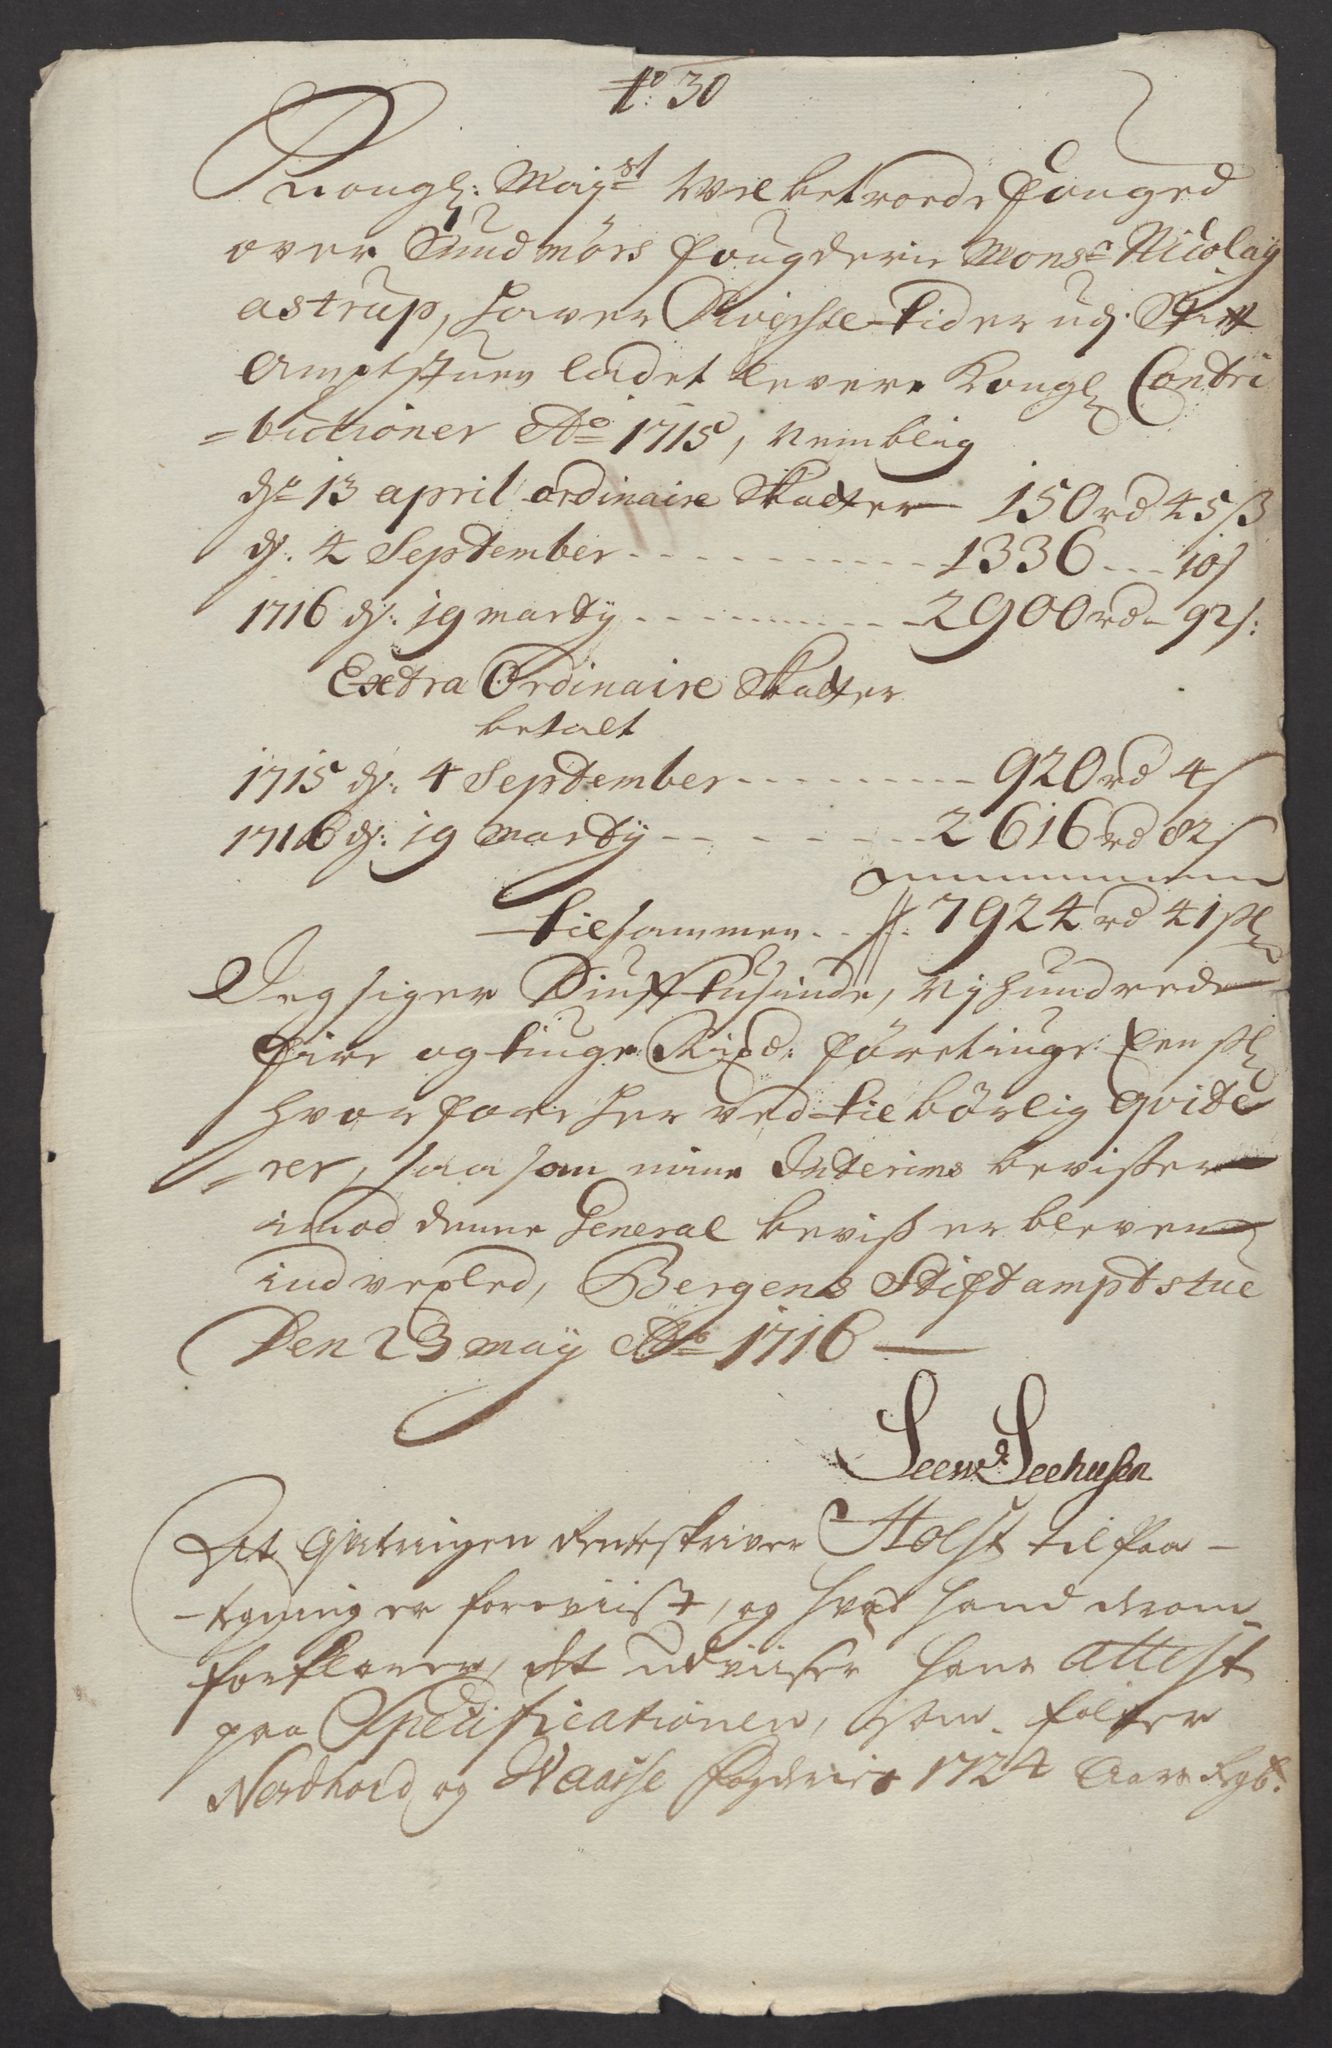 No: 30
Kongl: Mayst Wel betroede Fouged
over Sundmörs fougderie Monsr Nicolay
astrup, haver Adschellige tider udj Stift
Amptstuen ladet levere Kongl Contri
=butioner Ao 1715, nemblig
dn 13 april ordinaire Skatter 150 rd 45 ß
dj. 4 September - - - 1336 - - 10 ß
1716 dj: 19 marty - - - 2900 rd - 92 ß:
Extra Ordinaire Skatter
betalt
1715 dj: 4 September - - - 920 rd 4 ß
1716 dj: 19 marty - - - 2616 rd 82 ß
tilsammen . . 7924 rd 41 ßl
Jeg siger Siuff tusinde, Nj hundrede
fire og tiuge Rixd: företiuge Een ßl
hvorfore her ved tilbörlig qvite
=rer, saa som mine Interims bevißer
imod denne General beviß er bleven
indvexled, Bergens Stift amptstue
Den 23 may Ao 1716
Seew: Seehusen
At Qviteringen Renteskriver Holst til Paa-
-tegning er foreviist, og hvad hand derom
forklarer, det udviiser hans attest
paa Specificationen, som fölger
Nordhord og Waasse fogderie 1724 Aars Rgb: